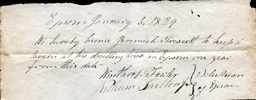 Epsom January 6, 1829
We hereby licence Jeremiah to keep a
at his dwelling house in Epsom one year
from this date
Winthrop Fowler } Selectmen
William } of Epsom